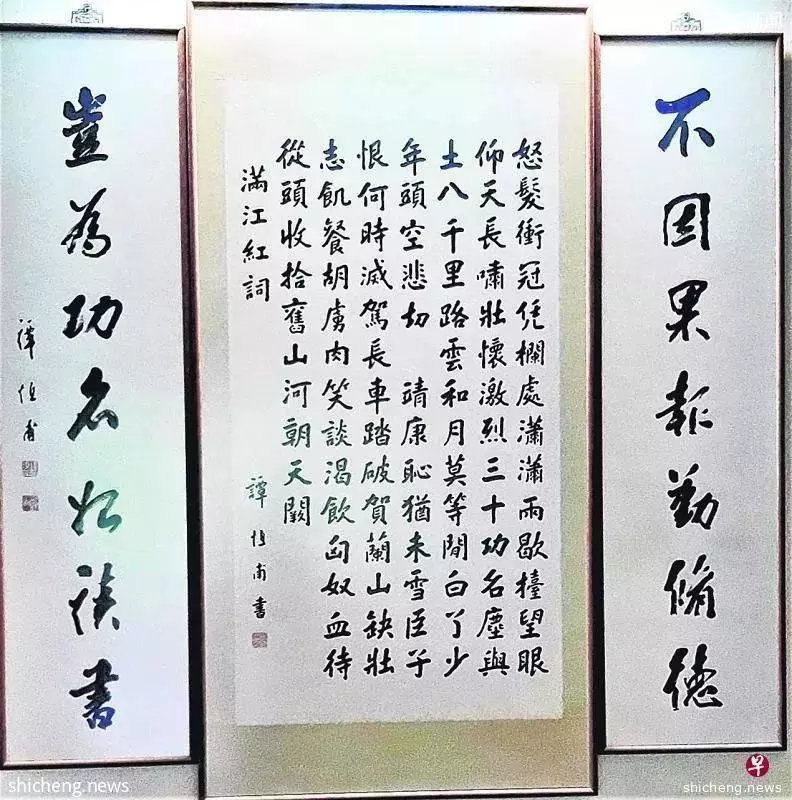 不因果報勤脩德
怒髮衝冠凭欄處瀟瀟雨歇擡望眼
仰天長嘯壯懷激烈三十功名塵與
土八千里路雲和月莫等閒白了少
年頭空悲切　靖康恥猶未雪臣子
恨何時滅駕長車踏破賀蘭山缺壯
志飢餐胡虜肉笑談渴飲匈奴血待
從頭收拾舊山河朝天闕
滿江紅詞
譚恒甫書
豈為功名始讀書
譚恒甫
shicheng.news
早
shicheng.news